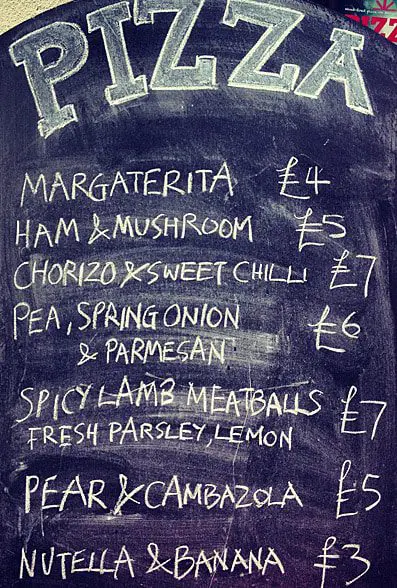 PIZZA
MARGATERITA £4
HAM & MUSHROOM £5
CHORIZO & SWEET CHILLI £7
PEA, SPRING ONION £6
& PARMESAN
SPICY LAMB MEATBALLS £7
FRESH PARSLEY, LEMON
PEAR & CAMBAZOLA £5
NUTELLA & BANANA £3